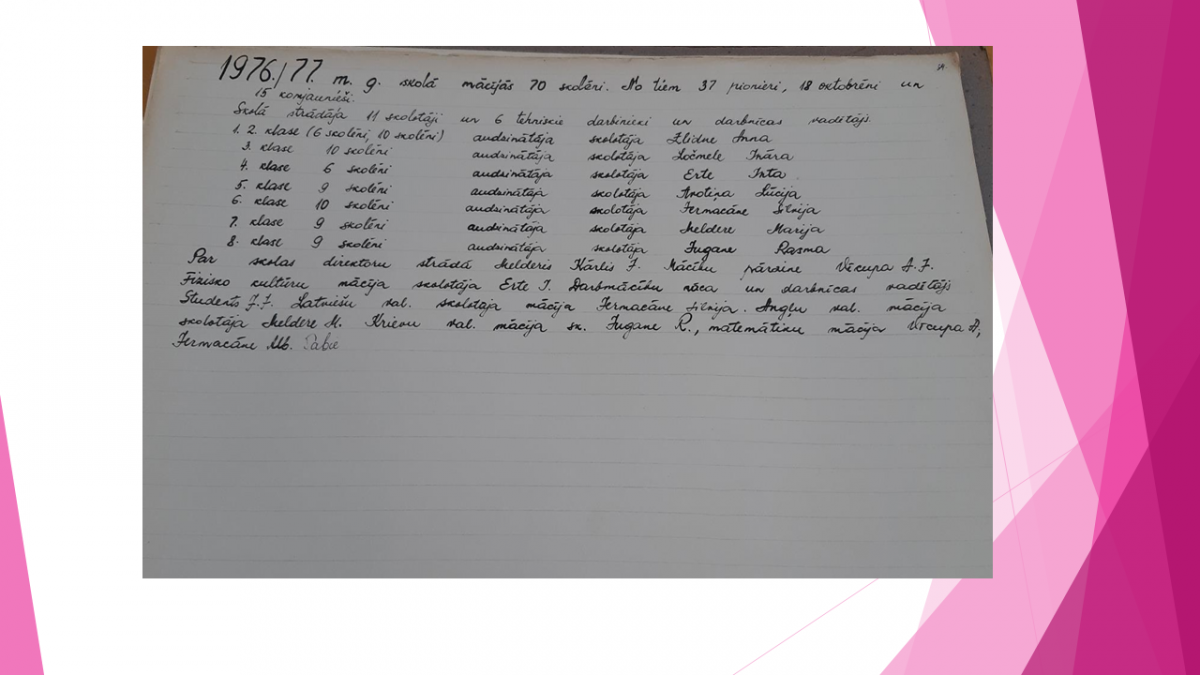 1976./77. m. g. skolā mācījās 70 skolēni. No tiem 37 pionieri, 18 oktobrēni un
15 komjaunieši.
Skolā strādāja 11 skolotāji un 6 tehniskie darbinieki un darbnīcas vadītājs.
1. 2. klase (6 skolēni, 10 skolēni) audzinātāja skolotāja Zlidne Anna
3. klase 10 skolēni audzinātāja skolotāja Ločmele Ināra
4. klase 6 skolēni audzinātāja skolotāja Erte Inta
5. klase 9 skolēni audzinātāja skolotāja Lūcija
6. klase 10 skolēni audzinātāja skolotāja Fermacāne Silvija
7. klase 9 skolēni audzinātāja skolotāja Meldere Marija
8. klase 9 skolēni audzinātāja skolotāja Fugane Rasma
Par skolas direktoru strādā Melderis Kārlis J. Mācību pārzine Vīcupa A. J.
Fizisko kultūru mācīja skolotāja Erte I. Darbmācību māca un darbnīcas vadītājs
Students J. J. Latviešu val. skolotāja mācīja Fermacāne Silvija. Angļu val. mācīja
skolotāja Meldere M. Krievu val. mācīja sk. Fugane R., matemātiku mācīja Vīcupa A,
Fermacāne Alb.